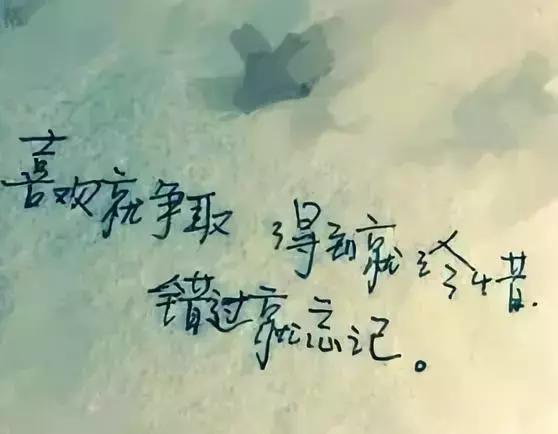 喜欢就争取 得到就珍惜.
错过就忘记。